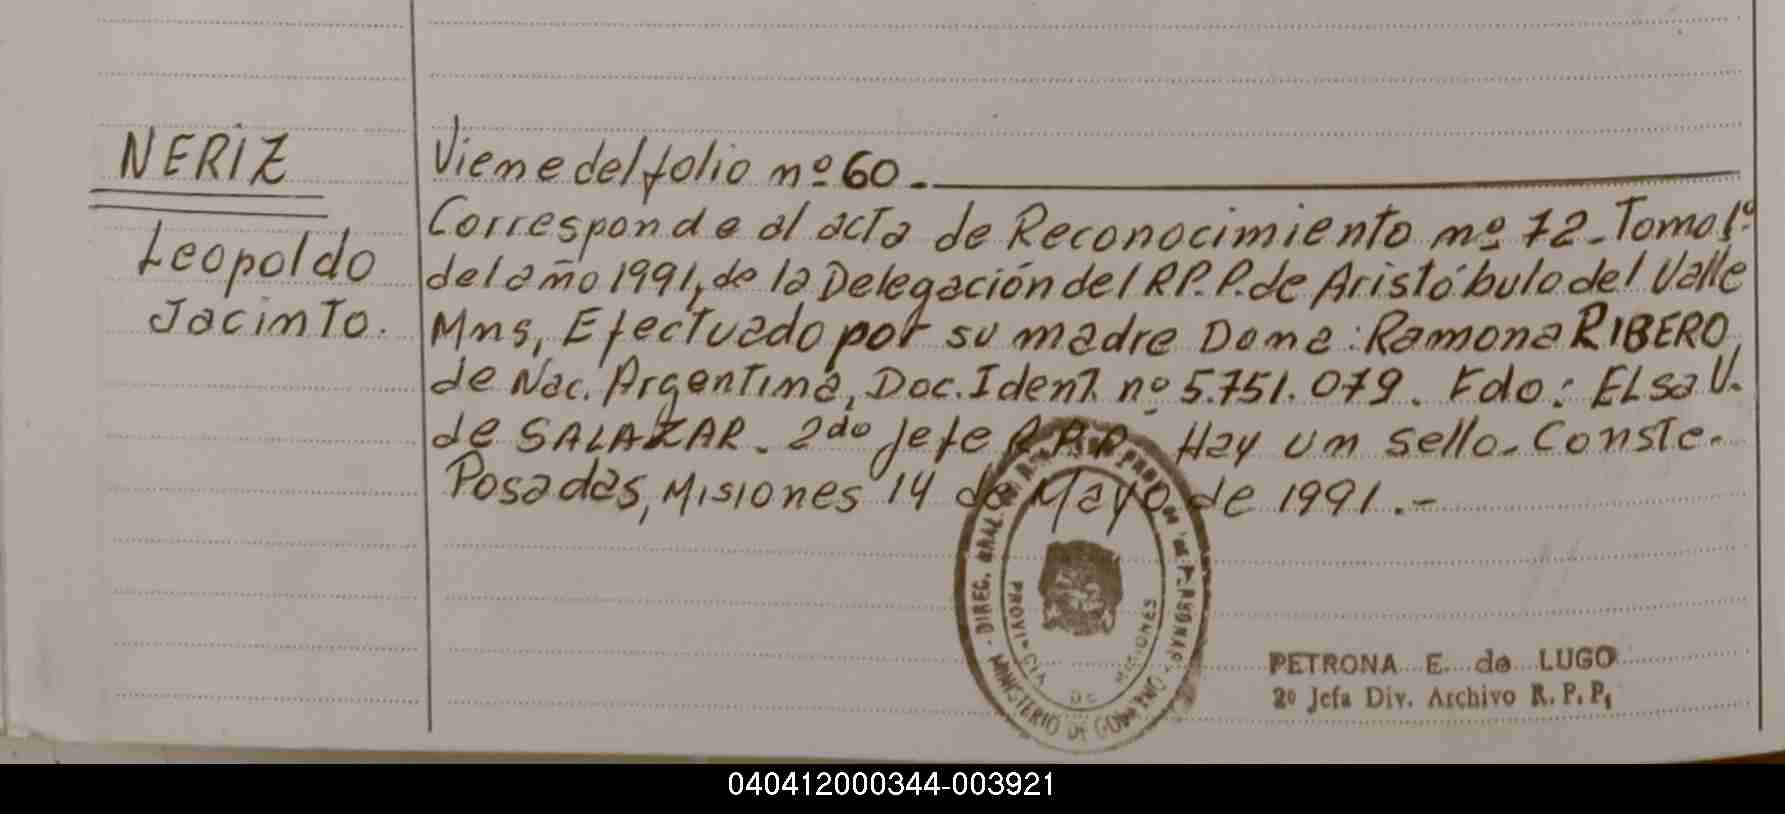 NERIZ
Leopoldo
Jacinto.
Viene del folio nº 60.-
Corresponde al acta de Reconocimiento nº 72- Tomo 1º
del año 1991, de la Delegación del R.P.P. de Aristóbulo del Valle
Mns, Efectuado por su madre Dona: Ramona RIBERO,
de Nac. Argentina, Doc. Ident. nº 5.751.079. Fdo: ELsa V.
de SALAZAR. 2do Jefe R.P.P. Hay un sello. Conste.
Posadas, Misiones 14 de Mayo de 1991.-
DIREC. GRAL.
MINISTERIO DE GOBIERNO
PROVINCIA DE MISIONES
PETRONA E. de LUGO
2º Jefa Div. Archivo R. P. P.
040412000344-003921